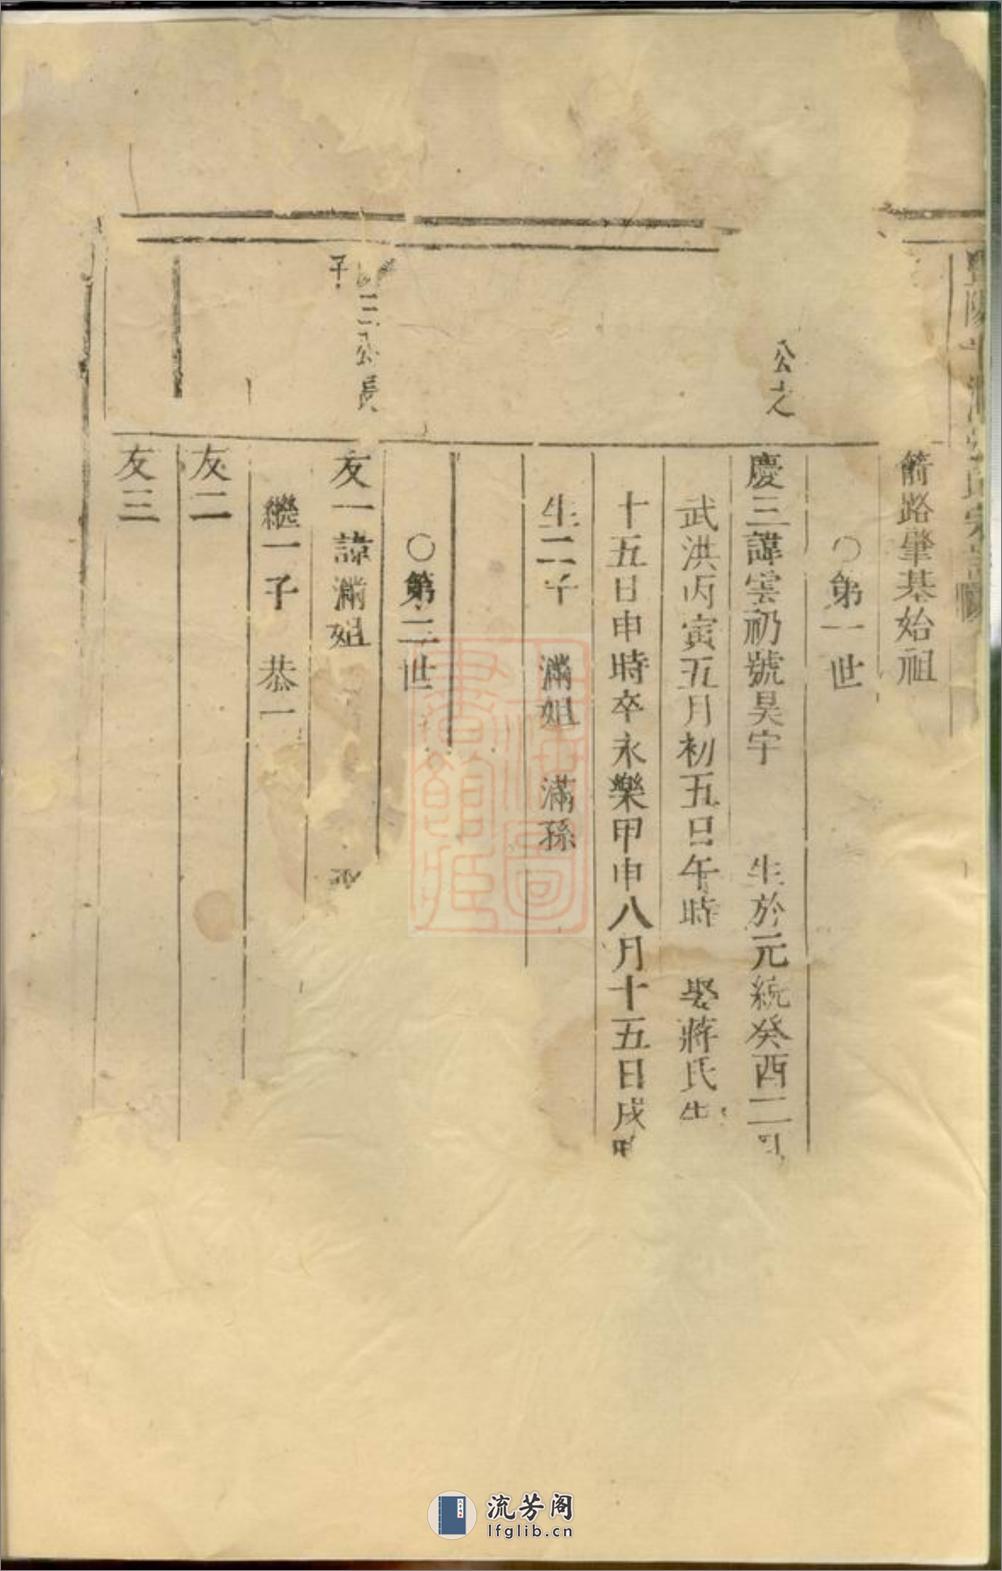 箭路肇基始祖
〇第一世
公之
慶三諱雲礽號昊宇 生於元統癸酉二月
武洪丙寅五月初五日午時 娶蔣氏生
十五日申時卒永樂甲申八月十五日戌時
生二子 滿姐 滿孫
〇第二世
三公長
子
友一諱滿姐
繼一子 恭一
友二
友三
流芳阁
lfglib.cn